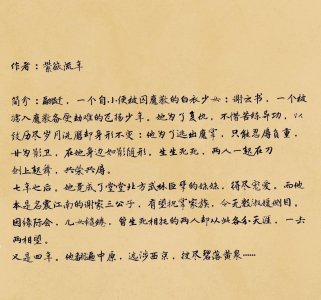 作者：紫狱流年
简介：翩跹，一个自小便被囚魔教的白衣少女；谢云书，一个被
掳入魔教备受劫难的飞扬少年。她为了复仇，不惜苦练异功，以
致历尽岁月洗磨却身形不变；他为了逃出魔掌，只能忍辱负重，
甘为影卫，在她身边如影随形。生生死死，两人一起在刀
剑上起舞，共荣共辱。
七年之后，她竟成了堂堂北方武林臣擘的妹妹，得尽宠爱。而他
本是名震江南的谢家三公子，有望执掌家族，令无数淑媛侧目。
因缘际会，几    曾生死相托的两人却从此各分天涯，一去
两相望。
又是四年，他翻遍中原，远涉西京，搜尽碧落黄泉……